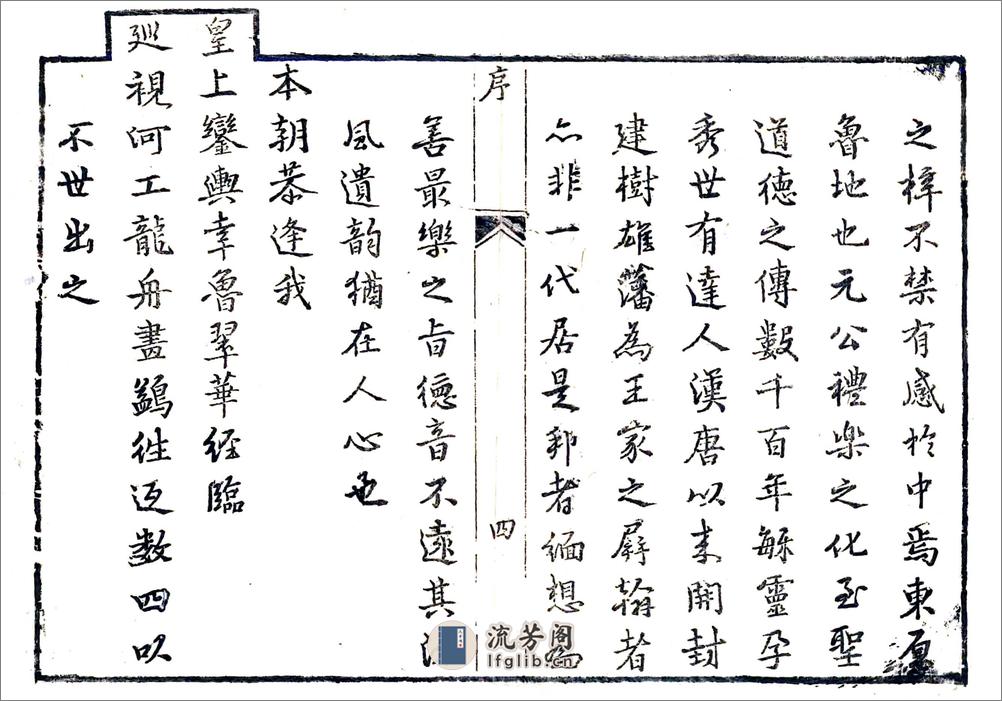 之梓不禁有感於中焉東原
魯地也元公禮樂之化至聖
道德之傳數千百年毓靈孕
秀世有達人漢唐以来開封
建樹雄藩為王家之屏翰者
亦非一代居是邦者緬想為
序
四
善最樂之旨德音不遠其流
風遺韵猶在人心也
本朝恭逢我
皇上鑾輿幸魯翠華經臨
廵視河工龍舟畫鷁徃返数四以
不世出之
流芳阁
lfglib.cn